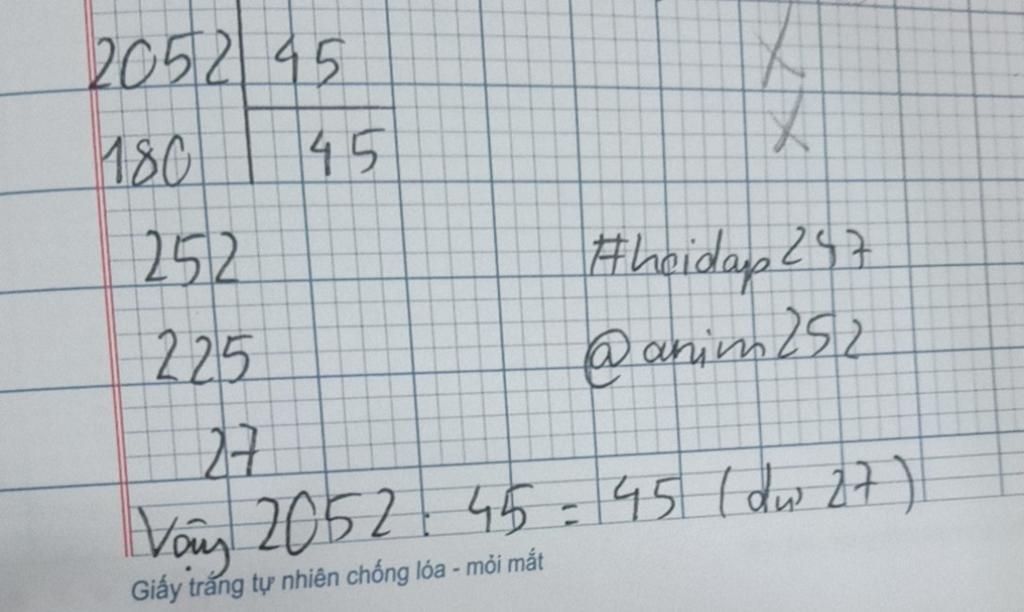 2052 45
180 45
252
#hoidap247
225
@anim252
27
Vậy 2052 : 45 = 45 (dư 27)
Giấy trắng tự nhiên chống lóa - mỏi mắt